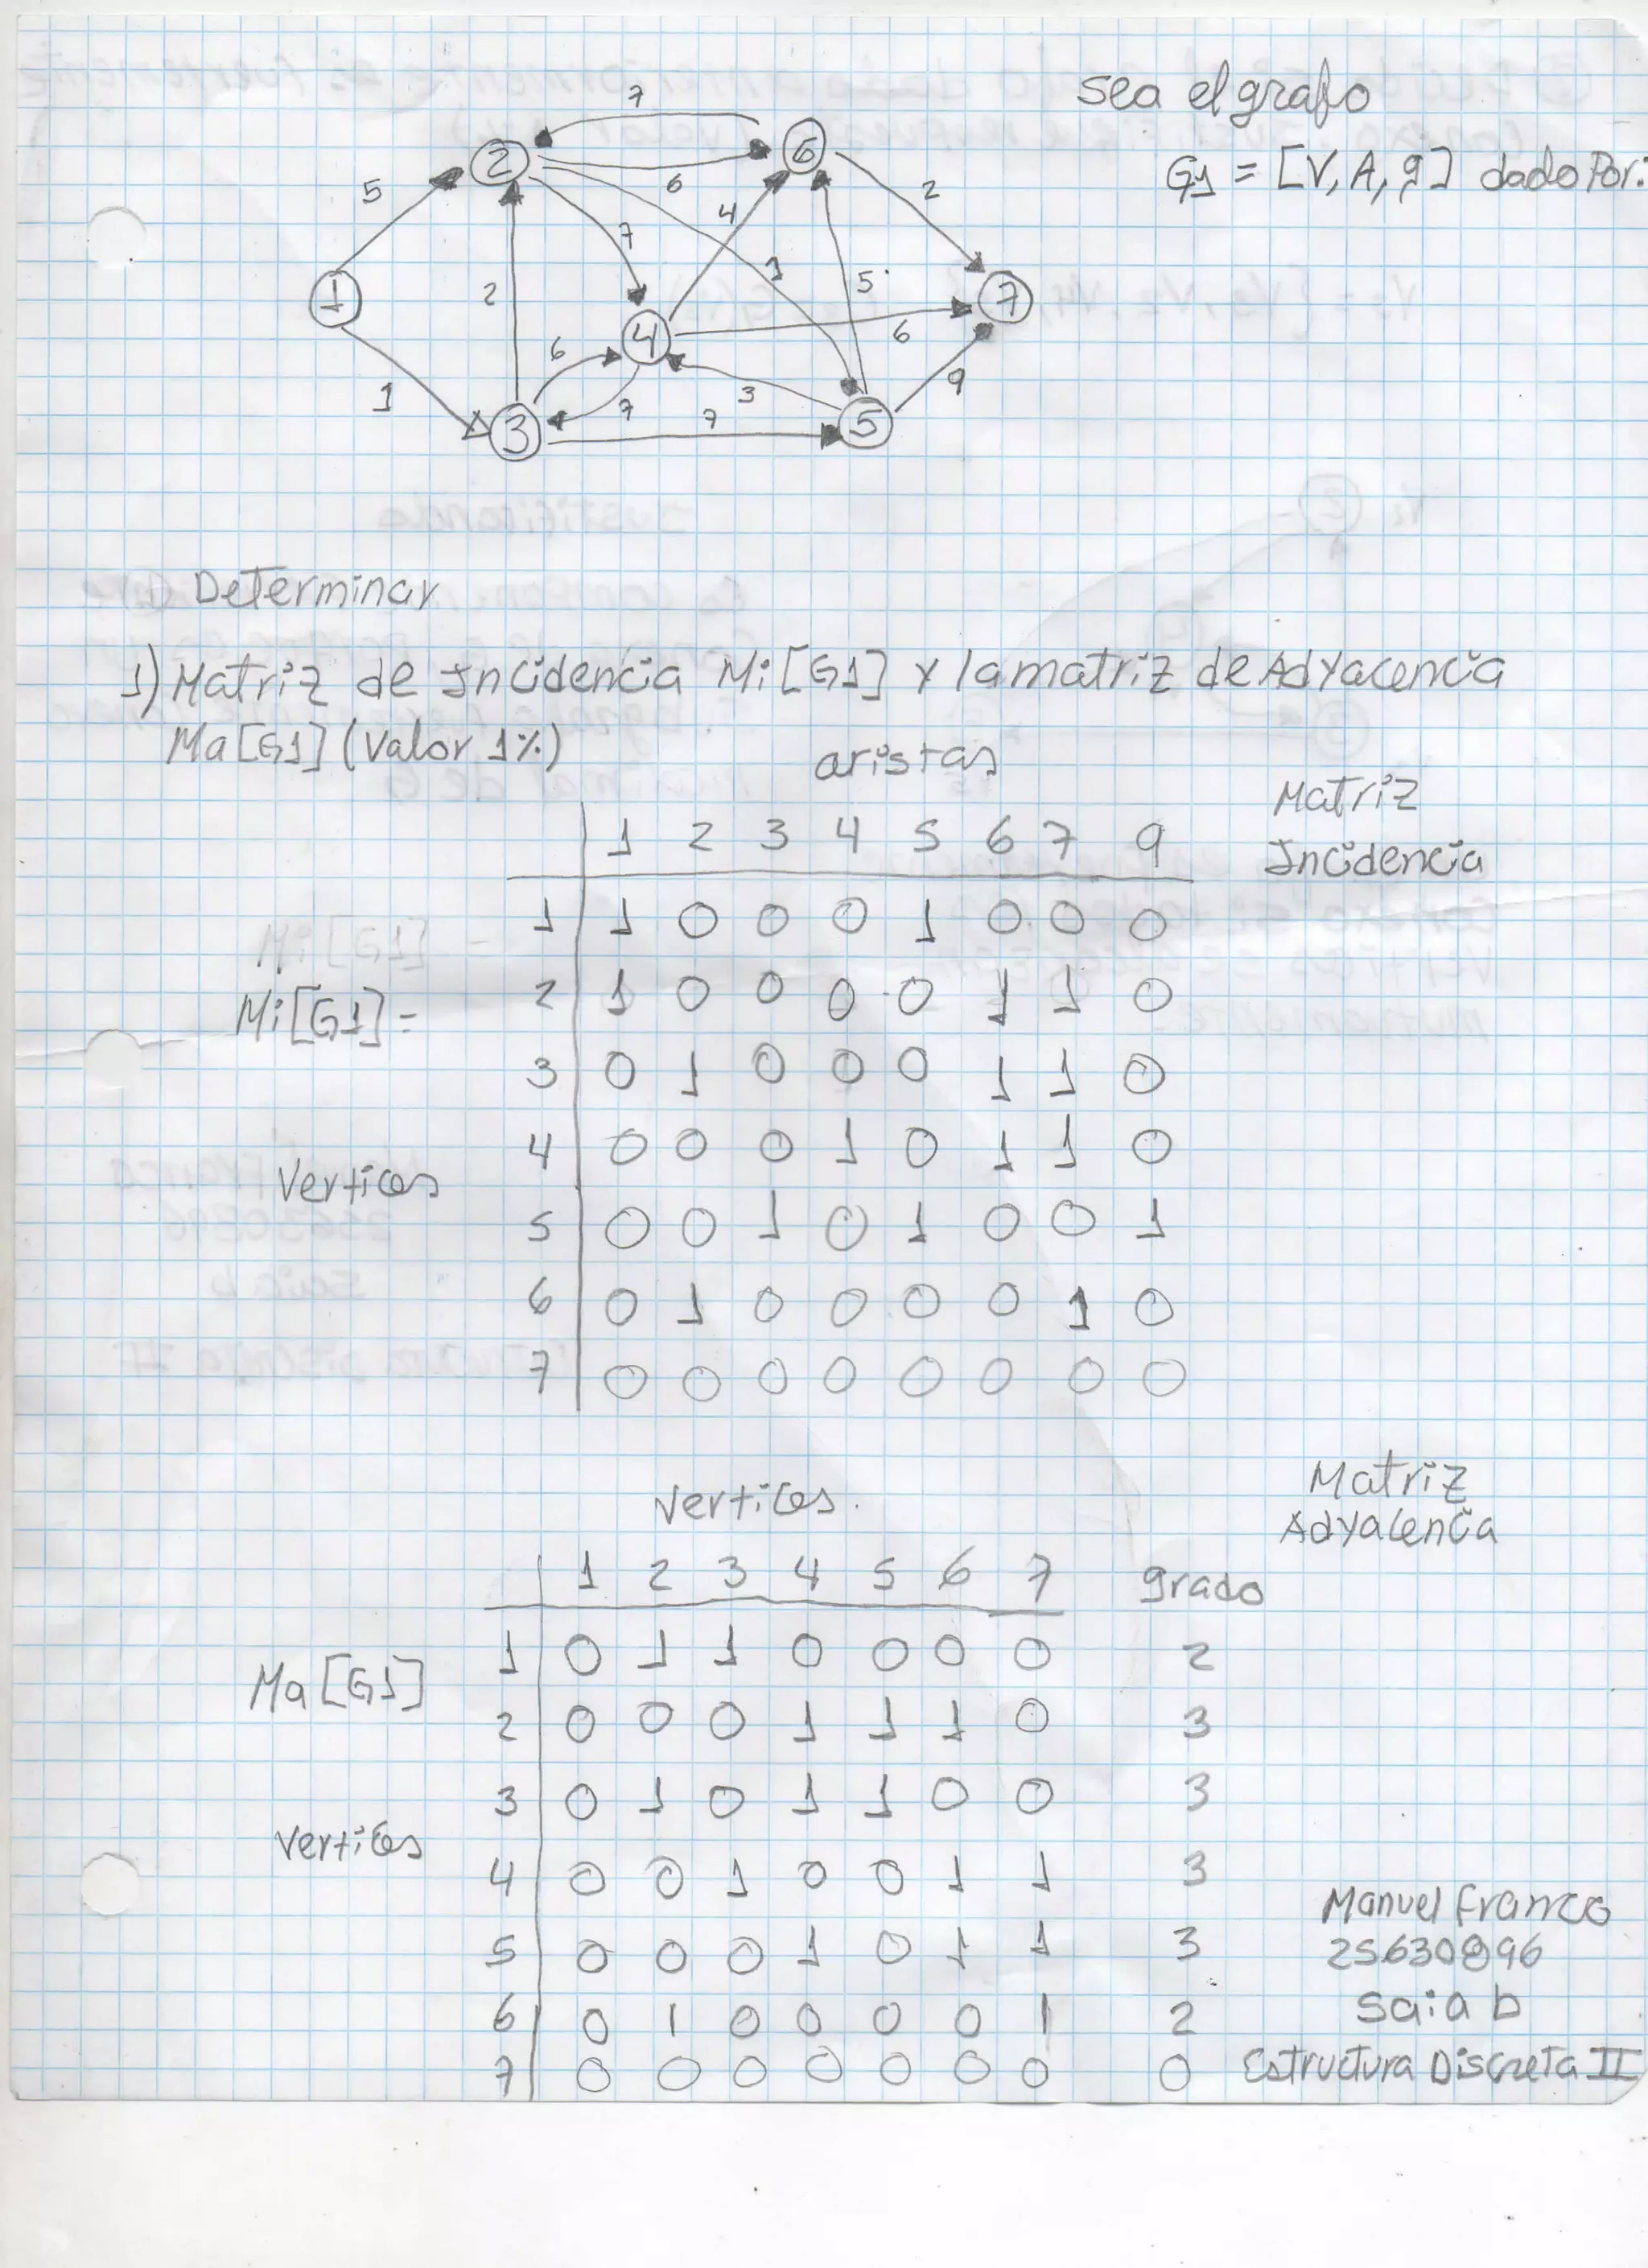 sea el grafo
G1 = [V, A, g] dado Por:
7
2
6
5
6
2
7
4
1
5
1
2
4
7
6
6
1
3
9
7
7
3
5
Determinar
1) Matriz de Incidencia Mi[G1] y la matriz de Adyacencia
Ma[G1] (Valor 1%)
aristas
Matriz
Incidencia
1 2 3 4 5 6 7 9
1 1 0 0 0 1 0 0 0
Mi[G1]
Mi[G1]=
2 1 0 0 0 0 1 1 0
3 0 1 0 0 0 1 1 0
4 0 0 0 1 0 1 1 0
Vertices
5 0 0 1 0 1 0 0 1
6 0 1 0 0 0 0 1 0
7 0 0 0 0 0 0 0 0
Vertices.
Matriz
Adyacencia
1 2 3 4 5 6 7 grado
1 0 1 1 0 0 0 0 2
Ma[G1]
2 0 0 0 1 1 1 0 3
3 0 1 0 1 1 0 0 3
Vertices
4 0 0 1 0 0 1 1 3
5 0 0 0 1 0 1 1 3
6 0 1 0 0 0 0 1 2
7 0 0 0 0 0 0 0 0
Manuel Franco
25630896
saia b
Estructura Discreta II